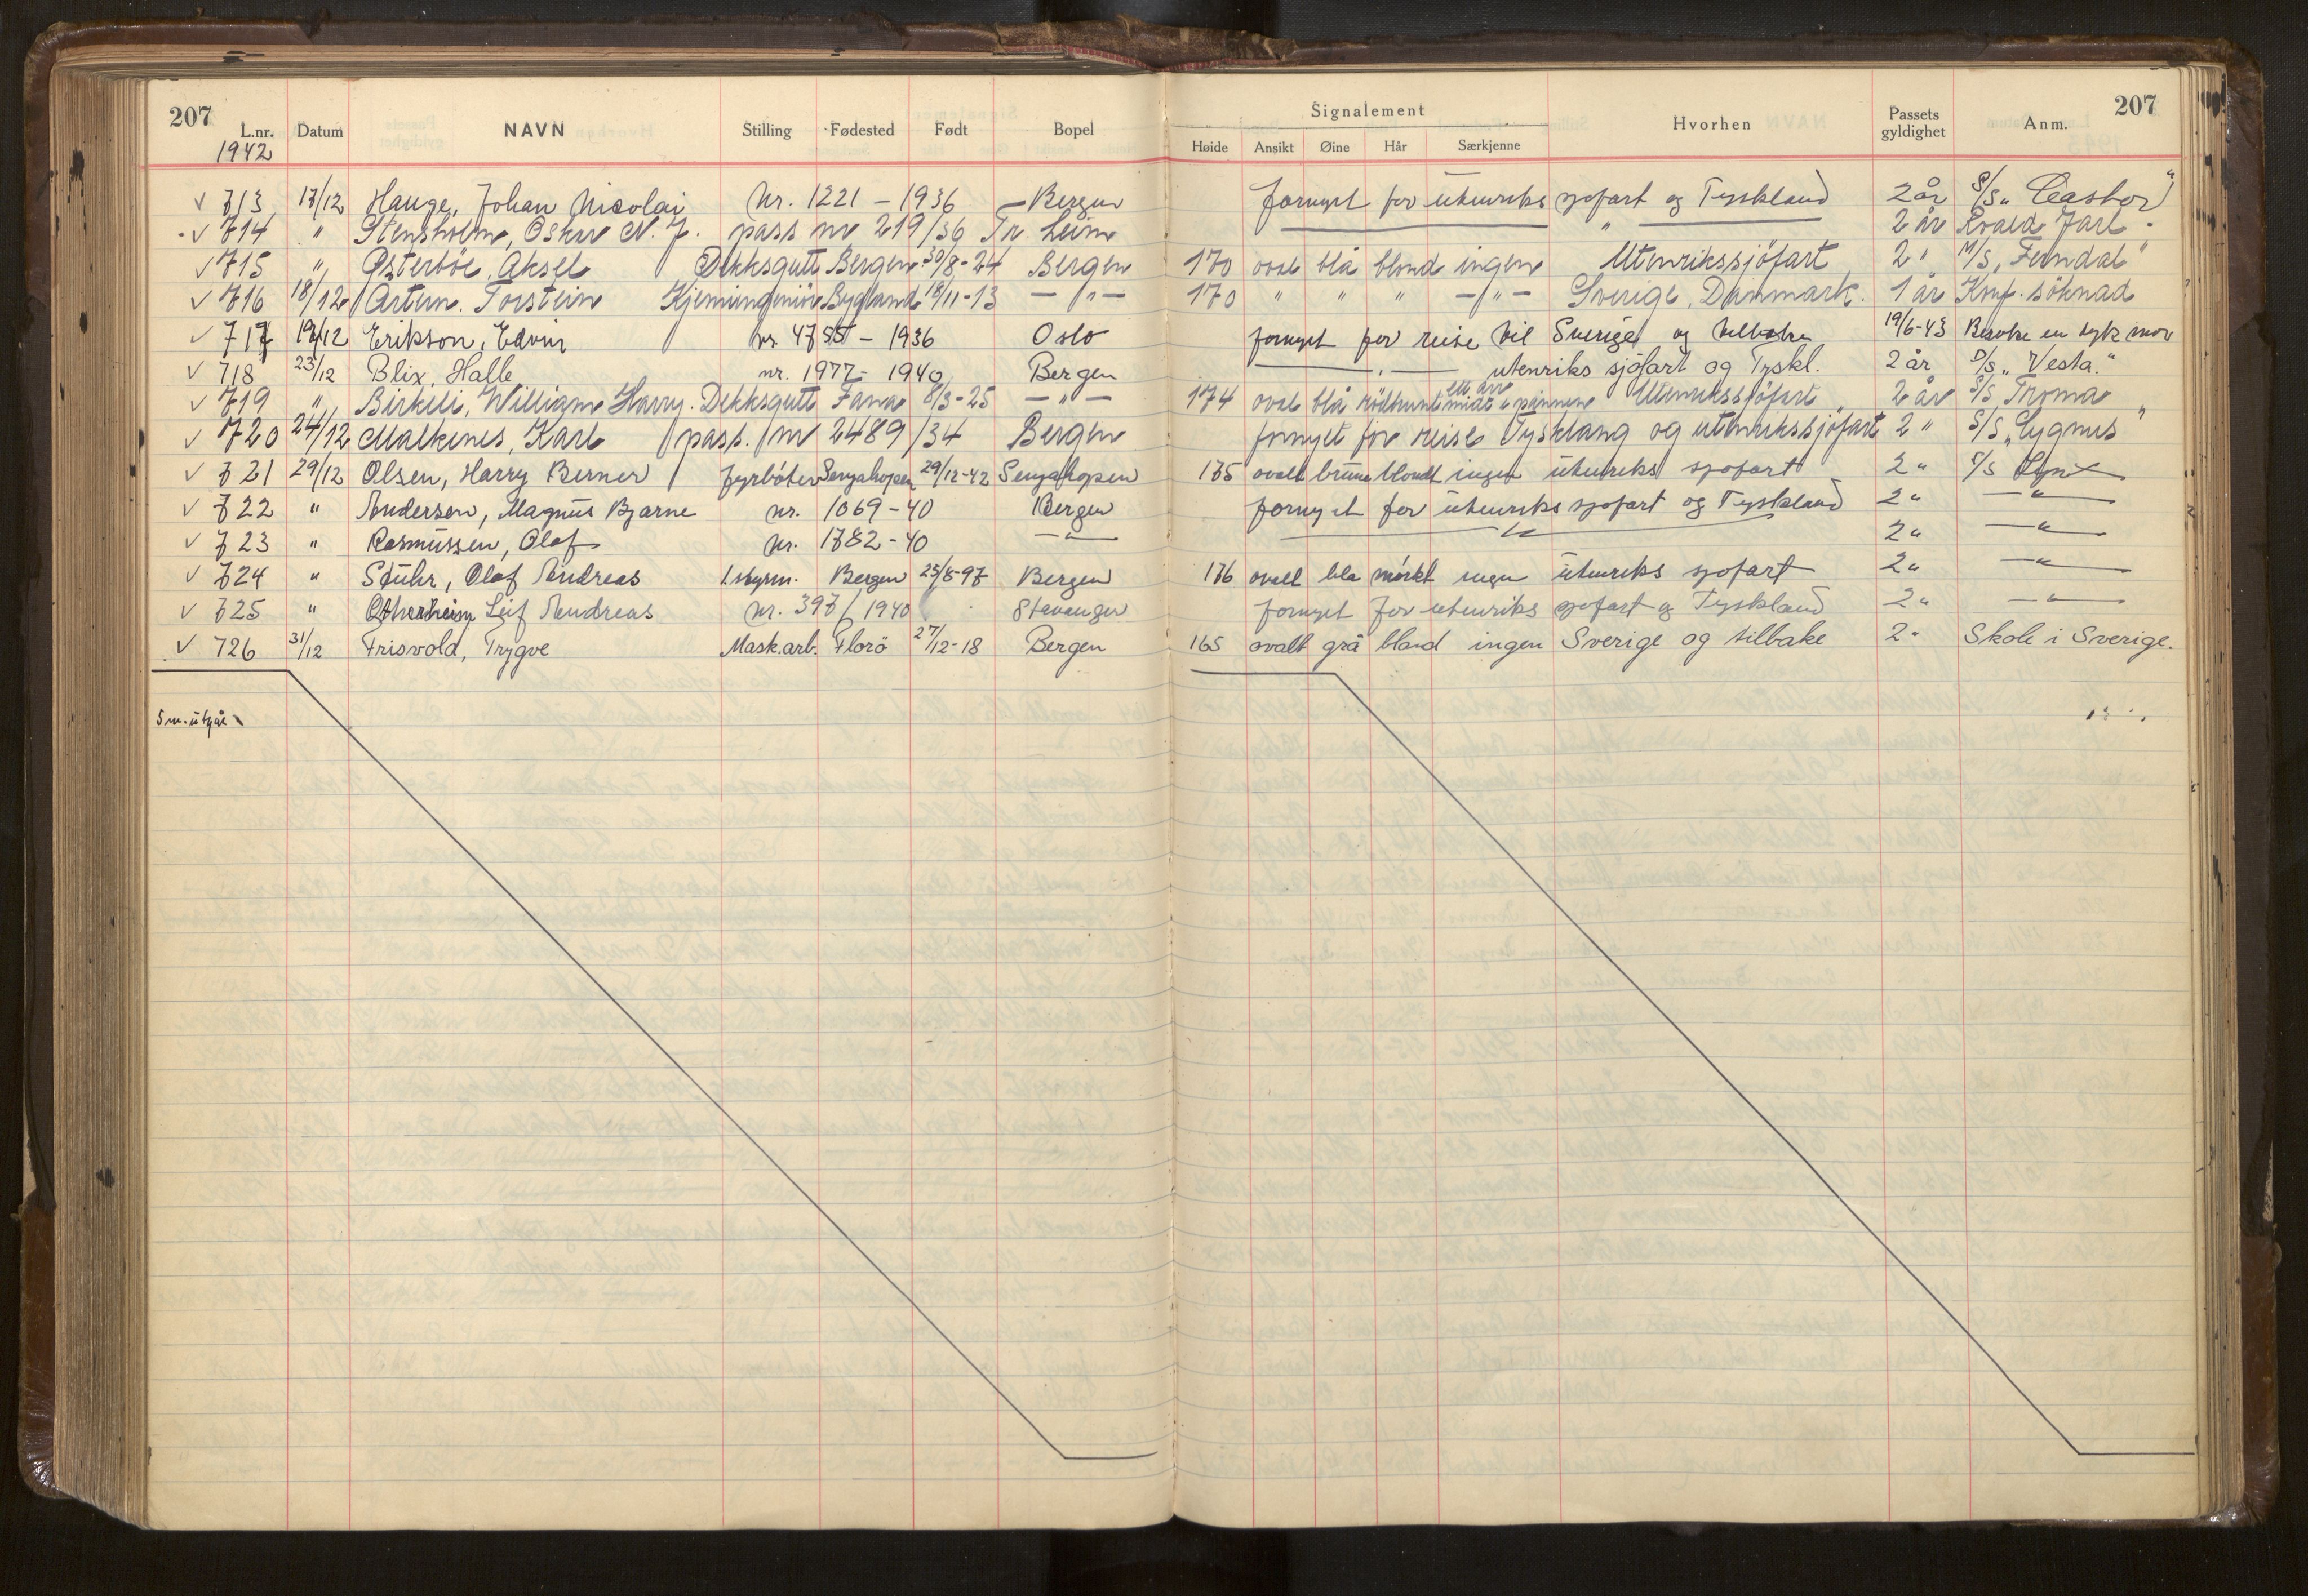 207 Signalement 207
L.nr. Datum NAVN Stilling Fødested Født Bopel Høide Ansikt Øine Hår Særkjenne Hvorhen Passets gyldighet Anm.
1942
√ 713 17/12 Hauge, Johan Nicolai Nr. 1221 - 1936 - Bergen fornyet for utenriks sjøfart og Tyskland 2 år S/S „Castor"
√ 714 " Stensholm, Oskar N. J. pass nr 219/36 Tr. Leim — " — 2 år Ragnvald Jarl
√ 715 " Østerböe, Aksel Dekksgutt Bergen 30/8-24 Bergen 170 oval blå blond ingen Utenrikssjöfart 2 " M/S „Ferndal"
√ 716 18/12 Artun. Torstein Kjemiingeniör Bygland 18/11-13 — " — 170 " " " — " — Sverige, Danmark. 1 år Konf. söknad
√ 717 19/12 Erikson, Edvin nr. 4755 - 1936 Oslo fornyet for reise til Sverige og tilbake 19/6-43 Besøke en syk mor
√ 718 23/12 Blix, Halle nr. 1977 - 1940 Bergen — " — utenriks sjöfart og Tyskl. 2 år D/S „Vesta."
√ 719 " Birkeli, William Harry. Dekksgutt Fana 8/3-25 — " — 174 oval blå rödbrunt ett arr midt i pannen Utenrikssjöfart 2 år S/S Troma
√ 720 24/12 Malkenes, Karl pass. nr 2489/34 Bergen fornyet for reise Tyskland og utenrikssjöfart 2 " S/S „Cygnus"
√ 721 29/12 Olsen, Harry Berner fyrbøter Senjahopen 29/12-42 Senjahopen 175 ovalt brune blondt ingen utenriks sjøfart 2 " S/S Lynx
√ 722 " Andersen, Magnus Bjarne nr. 1069-40 Bergen fornyet for utenriks sjøfart og Tyskland 2 " — " —
√ 723 " Rasmussen, Olaf Nr. 1782-40 — " — — " — 2 " — " —
√ 724 " Stuhr, Olaf Andreas 1. styrm. Bergen 25/8-97 Bergen 176 ovalt blå mørkt ingen utenriks sjøfart 2 " — " —
√ 725 " Leif Andreas Nr. 397/1940 Stavanger fornyet for utenriks sjøfart og Tyskland 2 " — " —
√ 726 31/12 Frisvold, Trygve Mask.arb. Florö 27/12-18 Bergen 165 ovalt grå blond ingen Sverige og tilbake 2 " Skole i Sverige.
5 m. utgår